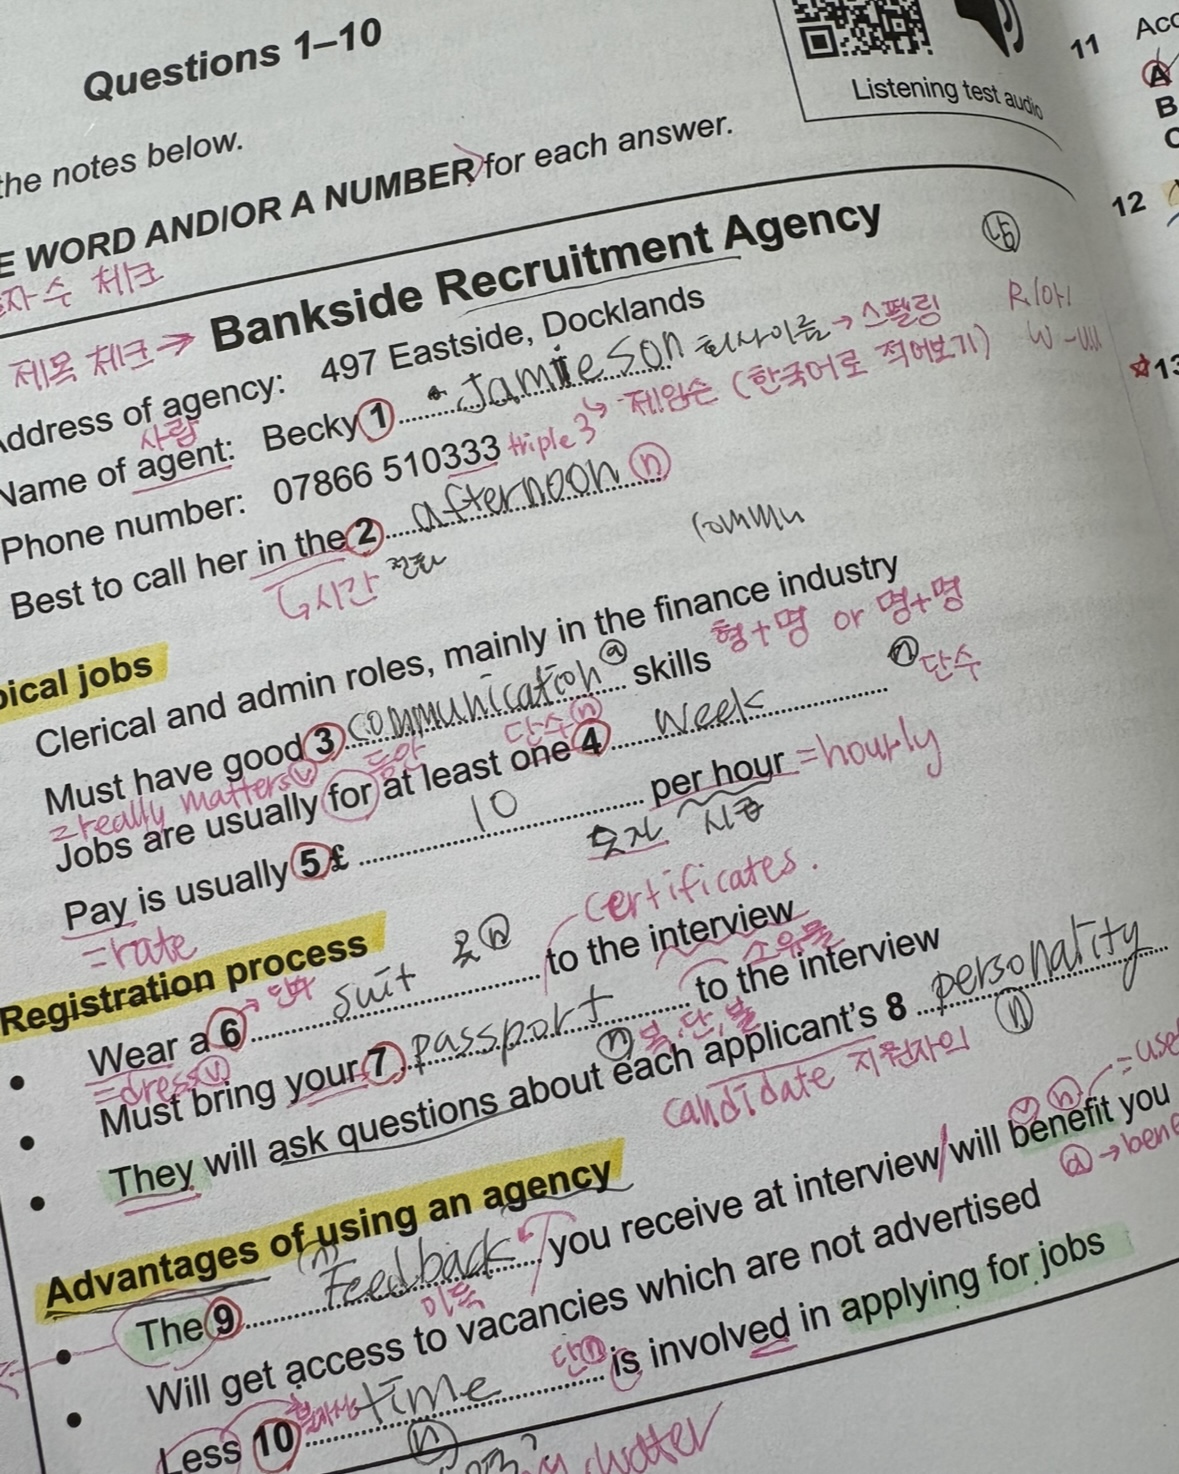 Questions 1–10
Listening test audio
11 Acc
A
B
C
the notes below.
E WORD AND/OR A NUMBER for each answer.
12
자수 체크
제목 체크 → Bankside Recruitment Agency
Address of agency: 497 Eastside, Docklands
사람
Name of agent: Becky 1 Jamieson 회사이름 → 스펠링
제임슨 (한국어로 적어보기)
☆13
Phone number: 07866 510333 triple 3
Best to call her in the 2 afternoon n
↳시간 전화
commu
pical jobs
Clerical and admin roles, mainly in the finance industry
형+명 or 명+명
Must have good 3 communication a skills
=really matters v 동안 단수 n
Jobs are usually for at least one 4 week n 단수
Pay is usually 5 £ 10 per hour = hourly
=rate 숫자 시급
certificates.
Registration process
• Wear a 6 suit n to the interview
=dress v 소유물
• Must bring your 7 passport to the interview
n
• They will ask questions about each applicant's 8 personality
candidate 지원자의 n
Advantages of using an agency
• The 9 Feedback you receive at interview will benefit you
이득
• Will get access to vacancies which are not advertised
Less 10 time is involved in applying for jobs
n